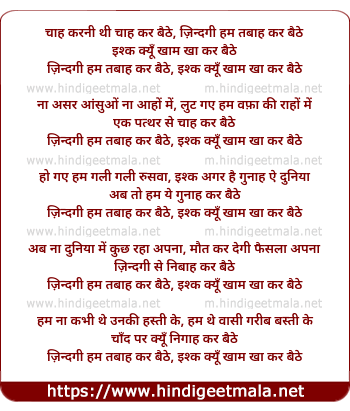 चाह करनी थी चाह कर बैठे, ज़िन्दगी हम तबाह कर बैठे
इश्क क्यूँ खाम खा कर बैठे
ज़िन्दगी हम तबाह कर बैठे, इश्क क्यूँ खाम खा कर बैठे
www.hindigeetmala.net m.hindigeetmala.net
ना असर आंसुओं ना आहों में, लुट गए हम वफ़ा की राहों में
एक पत्थर से चाह कर बैठे
ज़िन्दगी हम तबाह कर बैठे, इश्क क्यूँ खाम खा कर बैठे
www.hindigeetmala.net m.hindigeetmala.net
हो गए हम गली गली रुसवा, इश्क अगर है गुनाह ऐ दुनिया
अब तो हम ये गुनाह कर बैठे
ज़िन्दगी हम तबाह कर बैठे, इश्क क्यूँ खाम खा कर बैठे
www.hindigeetmala.net m.hindigeetmala.net
अब ना दुनिया में कुछ रहा अपना, मौत कर देगी फैसला अपना
ज़िन्दगी से निबाह कर बैठे
ज़िन्दगी हम तबाह कर बैठे, इश्क क्यूँ खाम खा कर बैठे
www.hindigeetmala.net m.hindigeetmala.net
हम ना कभी थे उनकी हस्ती के, हम थे वासी गरीब बस्ती के
चाँद पर क्यूँ निगाह कर बैठे
ज़िन्दगी हम तबाह कर बैठे, इश्क क्यूँ खाम खा कर बैठे
https://www.hindigeetmala.net